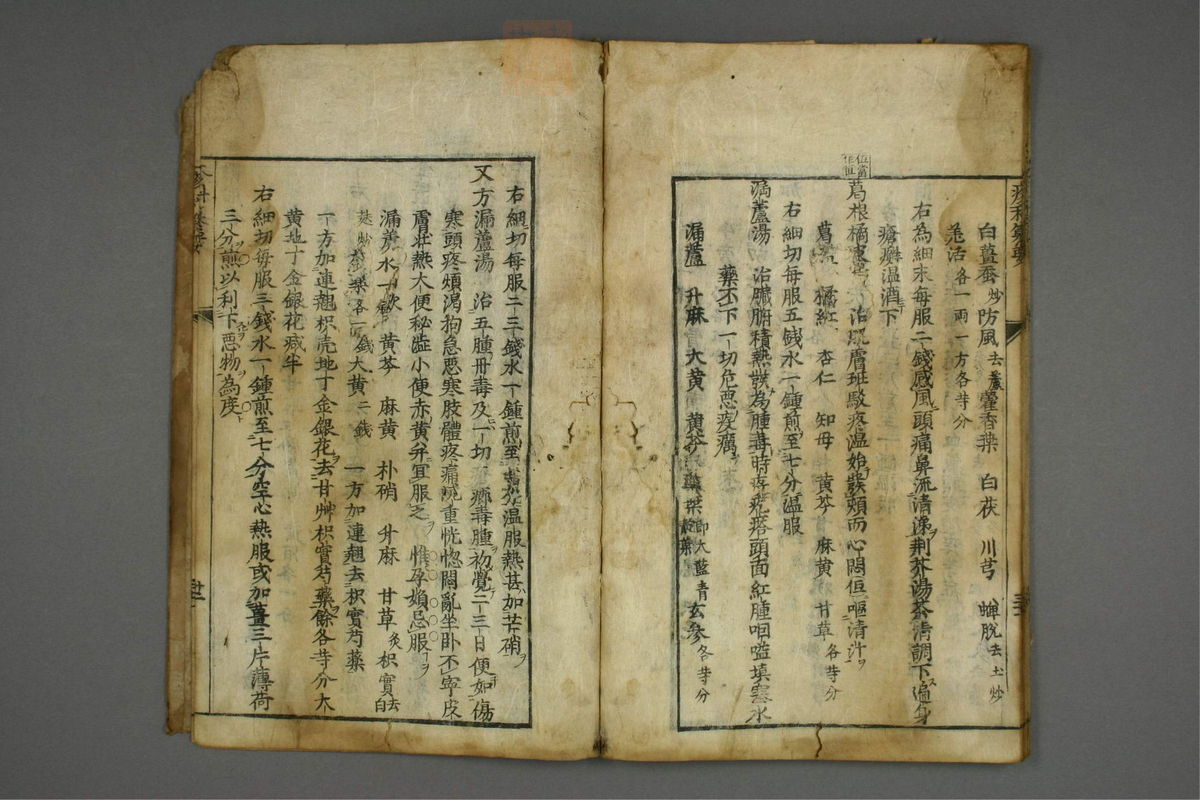 白薑蚕炒防風去蘆藿香葉 白茯 川芎 蝉脱去土炒
羌活各一兩一方各等分
右為細末每服二錢感風頭痛鼻流清涕荆芥湯茶清調下遍身
瘡癬温酒下
位當作恒
葛根橘 治肌膚班駁疼温始發頬而心悶但嘔清汁ヲ
葛 橘紅 杏仁 知母 黄芩 麻黄 甘草各等分
右細切每服五錢水一鍾煎至七分温服
漏蘆湯 治臓腑積熱發為腫毒時疼疙瘩頭面紅腫咽嗌填塞水
藥不下一切危悪疫癘
漏蘆 升麻 大黄 黄芩 葉即大藍青玄参各等分
右細切每服二三錢水一鍾煎至 温服熱甚加芒硝ヲ
又方漏蘆湯 治五腫丹毒及一切 癤毒腫初覺二三日便如傷
寒頭疼頬渇拘急悪寒肢體疼痛 重恍惚悶亂坐卧不寧皮
膚壮熱大便秘澁小便赤黄并宜服之 惟孕婦忌服ヲ
漏蘆 黄芩 麻黄 朴硝 升麻 甘草炙枳實去白
炒 藥各一錢大黄二錢 一方加連翹去枳實芍藥
一方加連翹枳壳地丁金銀花去甘艸枳實芍藥餘各等分大
黄地丁金銀花减半
右細切每服三錢水一鍾煎至七分空心熱服或加薑三片薄荷
三分煎以利下悪物為度